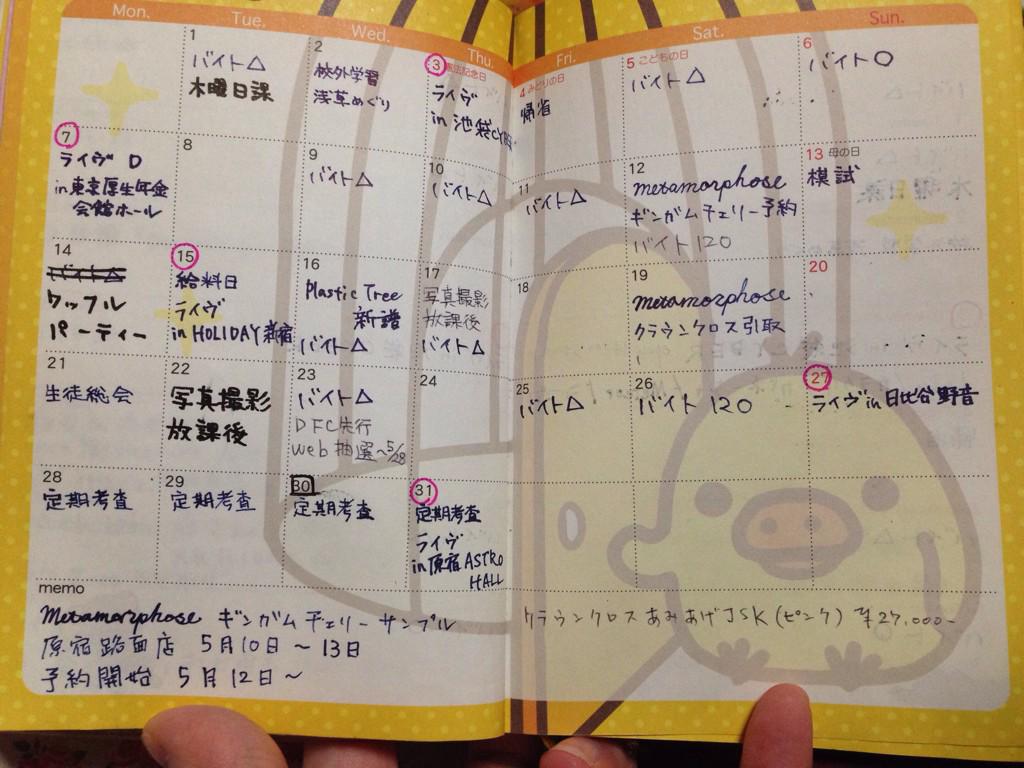 Mon.
Tue.
Wed.
Thu.
Fri.
Sat.
Sun.
1
バイト△
木曜日課
2
校外学習
浅草めぐり
3 憲法記念日
ライヴ
in 池袋CYBER
4 みどりの日
帰省
5 こどもの日
バイト△
6
バイト○
7
ライヴ D
in 東京厚生年金
会館ホール
8
9
バイト△
10
バイト△
11
バイト△
12
metamorphose
ギンガムチェリー予約
バイト120
13 母の日
模試
14
バイト△
ワッフル
パーティー
15
給料日
ライヴ
in HOLIDAY新宿
16
Plastic Tree
新譜
バイト△
17
写真撮影
放課後
バイト△
18
19
metamorphose
クラウンクロス引取
20
21
生徒総会
22
写真撮影
放課後
23
バイト△
DFC先行
web抽選～5/28
24
25
バイト△
26
バイト120
27
ライヴin日比谷野音
28
定期考査
29
定期考査
30
定期考査
31
定期考査
ライヴ
in原宿ASTRO
HALL
memo
Metamorphose ギンガムチェリーサンプル
原宿路面店 5月10日～13日
予約開始 5月12日～
クラウンクロスあみあげJSK(ピンク) ¥27,000-